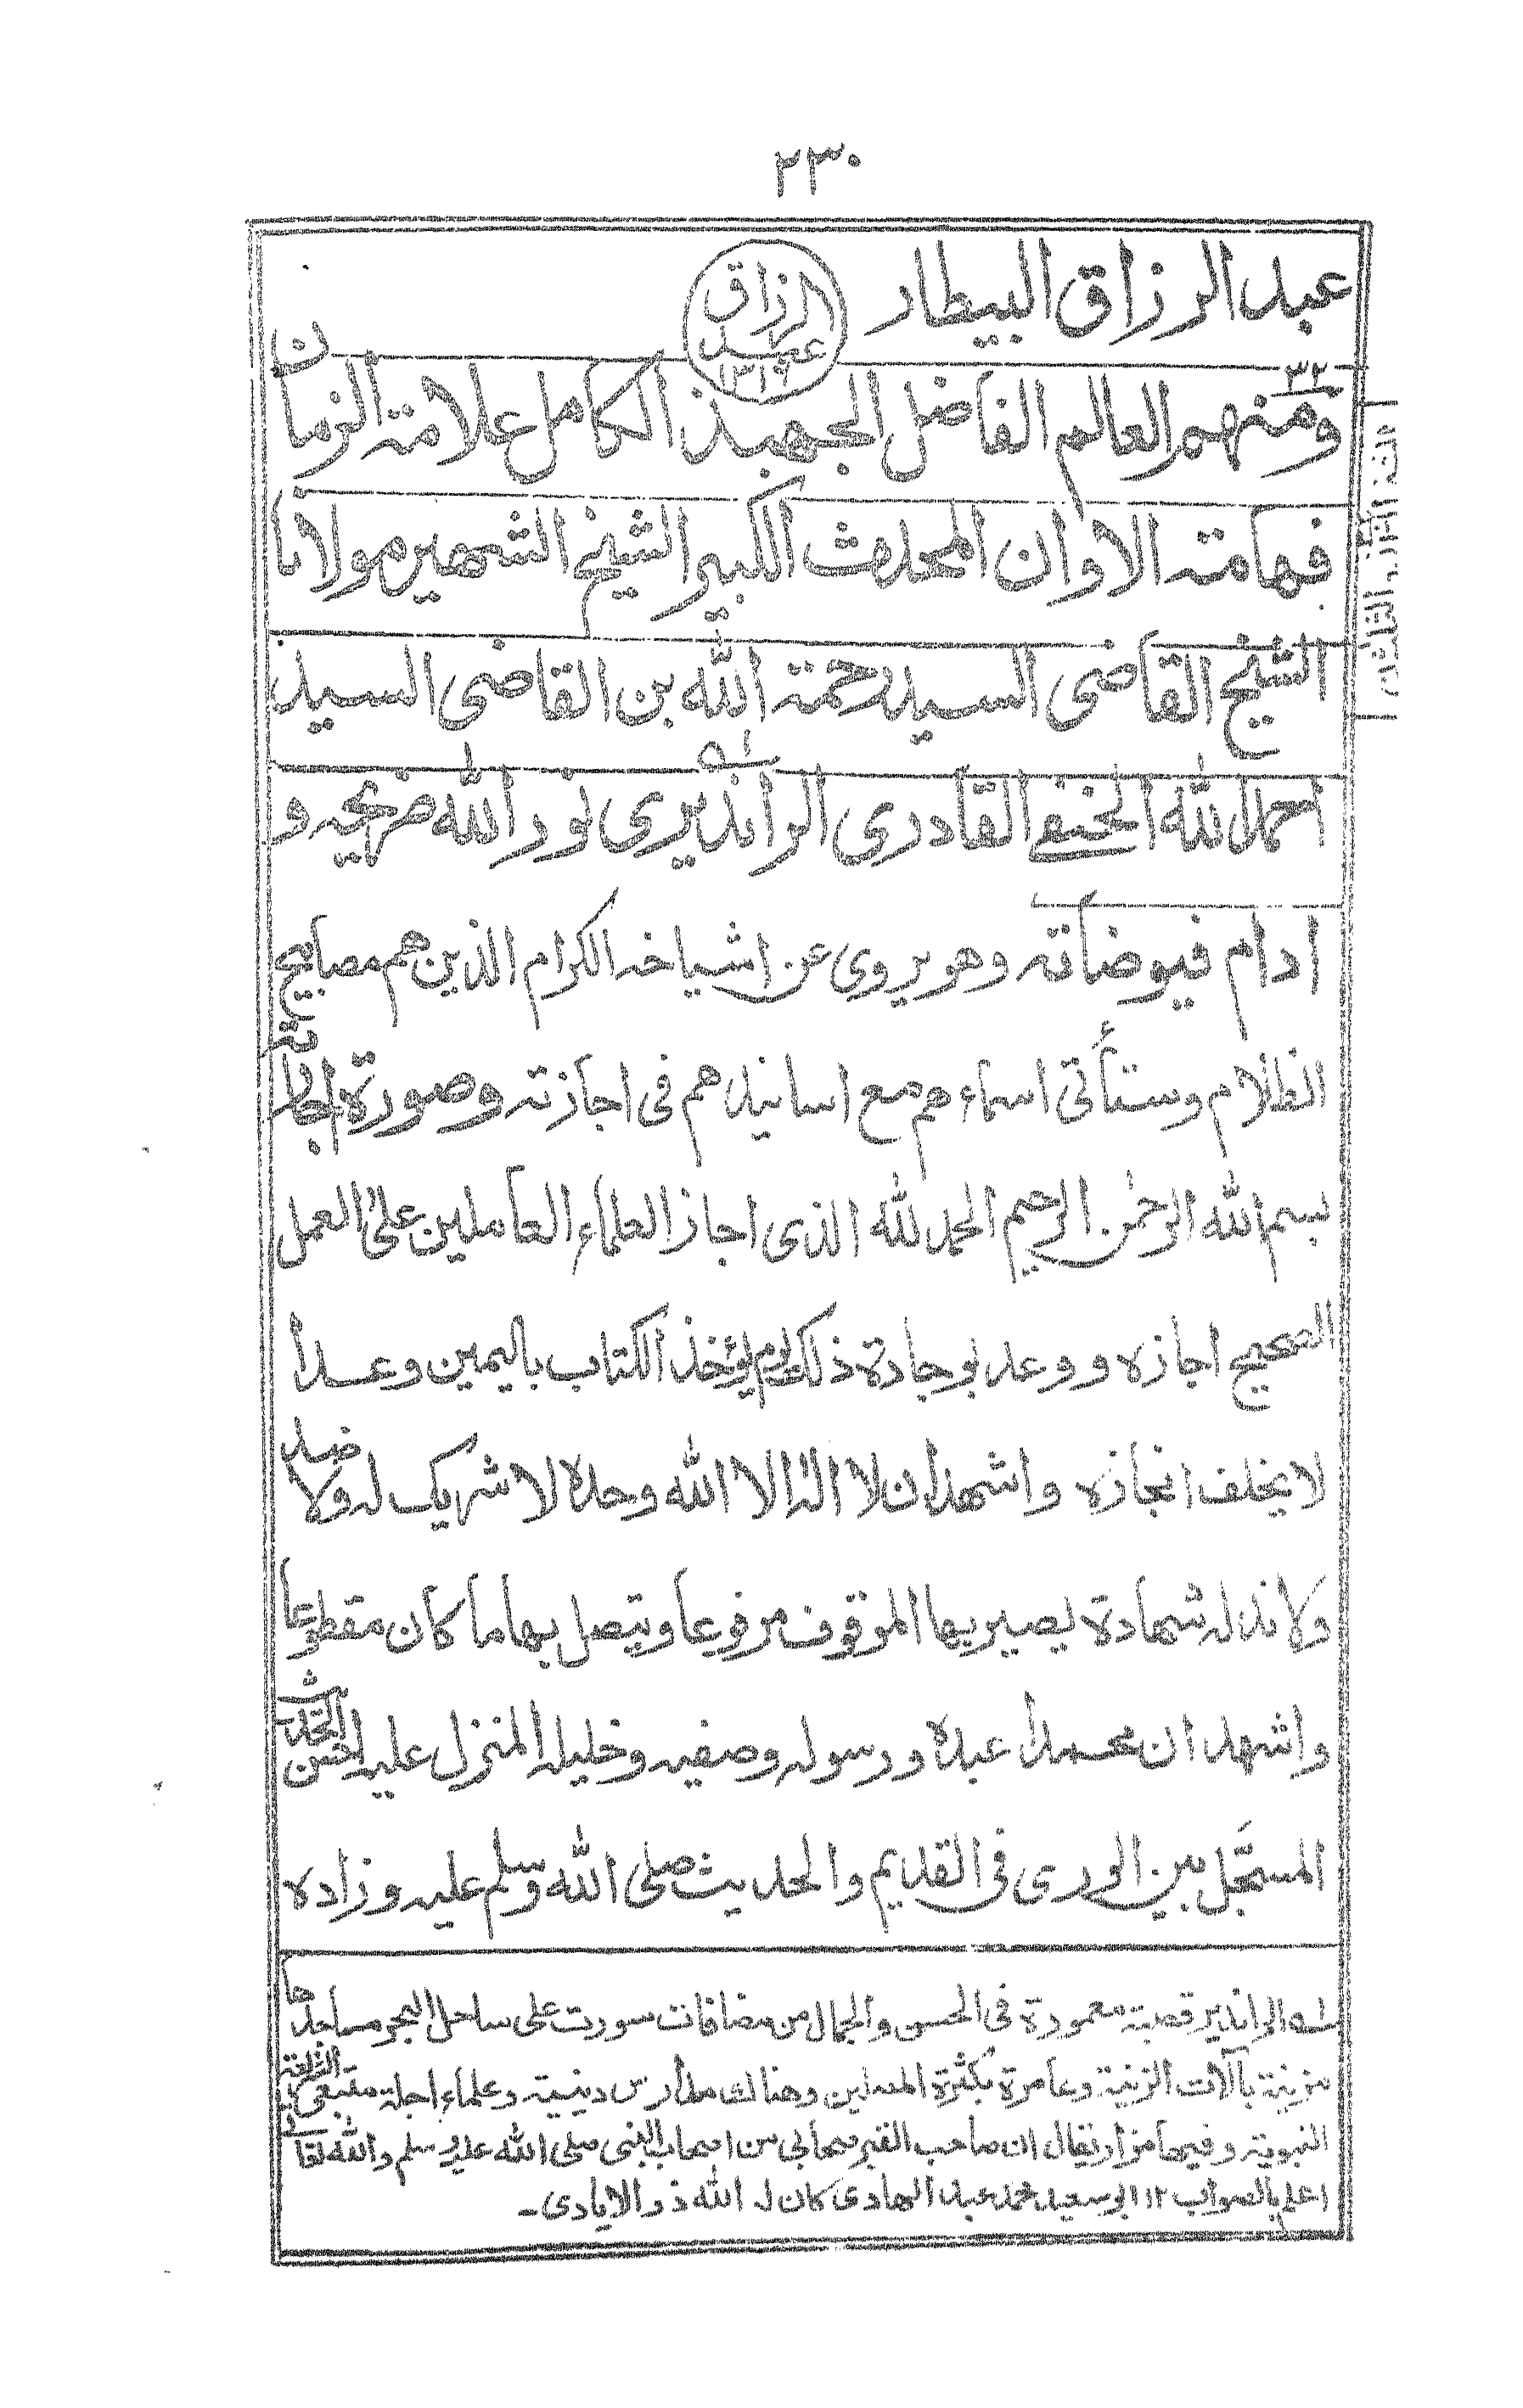 ٢٣٠
عبد الرزاق البيطار
الرزاق
عبد
٣٢
ومنهم العالم الفاضل الجهبذ الكامل علامة الزمان
فهامة الاوان المحدث الكبير الشيخ الشهير مولانا
الشيخ القاضى السيد رحمة الله بن القاضى السيد
احمد لله الحنفى القادرى الراندیری نور الله ضريحه و
ادام فيوضاته وهو يروى عن اشياخه الكرام الذين هم مصابيح
الظلام وستأتى اسماءهم مع اسانيدهم فى اجازته وصورة اجازته
بسم الله الرحمٰن الرحيم الحمد لله الذى اجاز العلماء العاملين على العمل
الصحيح اجازه ووعد بوجادة ذلك يوم يؤخذ الكتاب باليمين وعدا
لا يخلف انجازه واشهد ان لا اله الا الله وحده لا شريك له ولا ضد
ولا ند له شهادة يصير بها الموقوف مرفوعا ويتصل بها ما كان مقطوعا
واشهد ان محمدا عبده ورسوله وصفيه وخليله المنزل عليه احسن الحديث
المسجّل بين الورى فى القديم والحديث صلى الله وسلم عليه وزاده
له الراندير قصبة معمورة فى الحسن والجمال من مضافات سورت على ساحل البحر مساجدها
مزينة بآلات الزينة وعامرة بكثرة المصلين وهنالك مدارس دينية وعلماء اجلة متبعى الشريعة
النبوية وفيها مزار يقال ان صاحب القبر صحابى من اصحاب النبى صلى الله عليه وسلم والله تعالى
اعلم بالصواب ١٢ ابو سعيد محمد عبد الهادى كان له الله ذو الايادى ۔